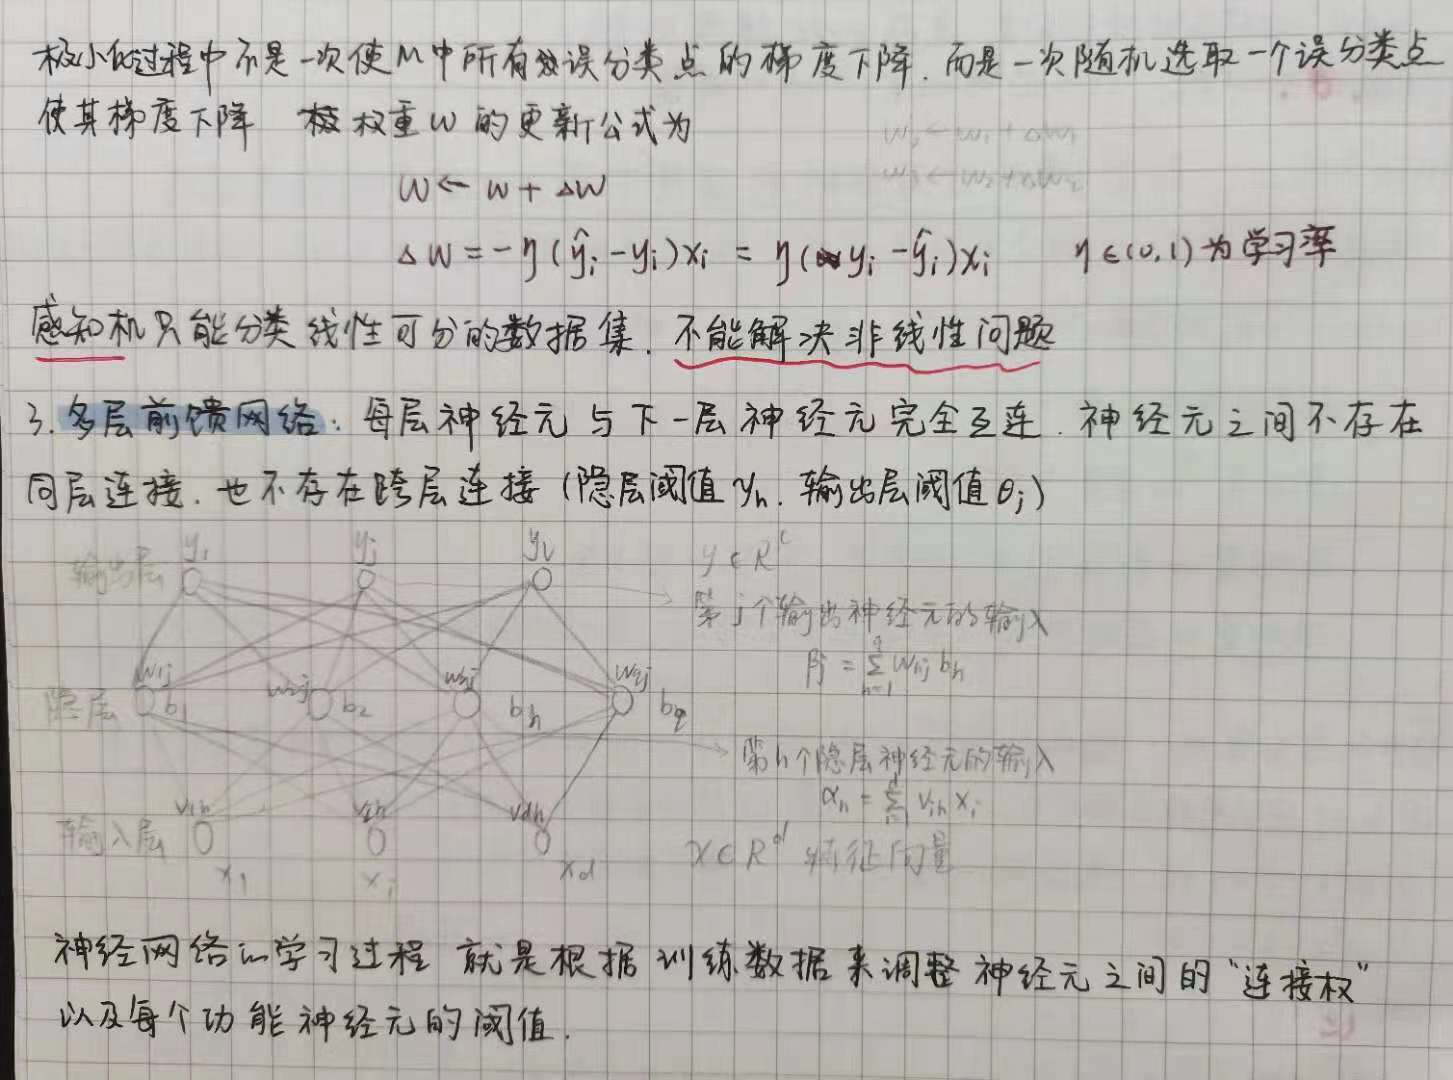 极小化过程中不是一次使M中所有误分类点的梯度下降.而是一次随机选取一个误分类点
使其梯度下降 权重W的更新公式为
W ← W + ΔW
ΔW = -η(ŷi - yi)xi = η(yi - ŷi)xi η∈(0,1)为学习率
感知机只能分类线性可分的数据集.不能解决非线性问题
3.多层前馈网络:每层神经元与下一层神经元完全互连.神经元之间不存在
同层连接.也不存在跨层连接(隐层阈值γh.输出层阈值θj)
输出层 y1 yj yl y∈R^l
第j个输出神经元的输入
βj = Σ(h=1..q) whj bh
w1j w2j whj wqj
隐层 b1 b2 bh bq
第h个隐层神经元的输入
αh = Σ(i=1..d) vih xi
v1h vih vdh
输入层 x1 xi xd x∈R^d 特征向量
神经网络的学习过程 就是根据训练数据来调整神经元之间的"连接权"
以及每个功能神经元的阈值.